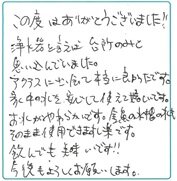 この度はありがとうございました!!
浄水器と言えば 台所のみと
思い込んでいました。
アクアスに出会って本当に良かったです。
家中の水を安心して使えて嬉しいです。
お水がやわらかです。金魚の水槽の水も
そのまま使用できますし楽です。
飲んでも美味しいです!!
今後もよろしくお願いします。